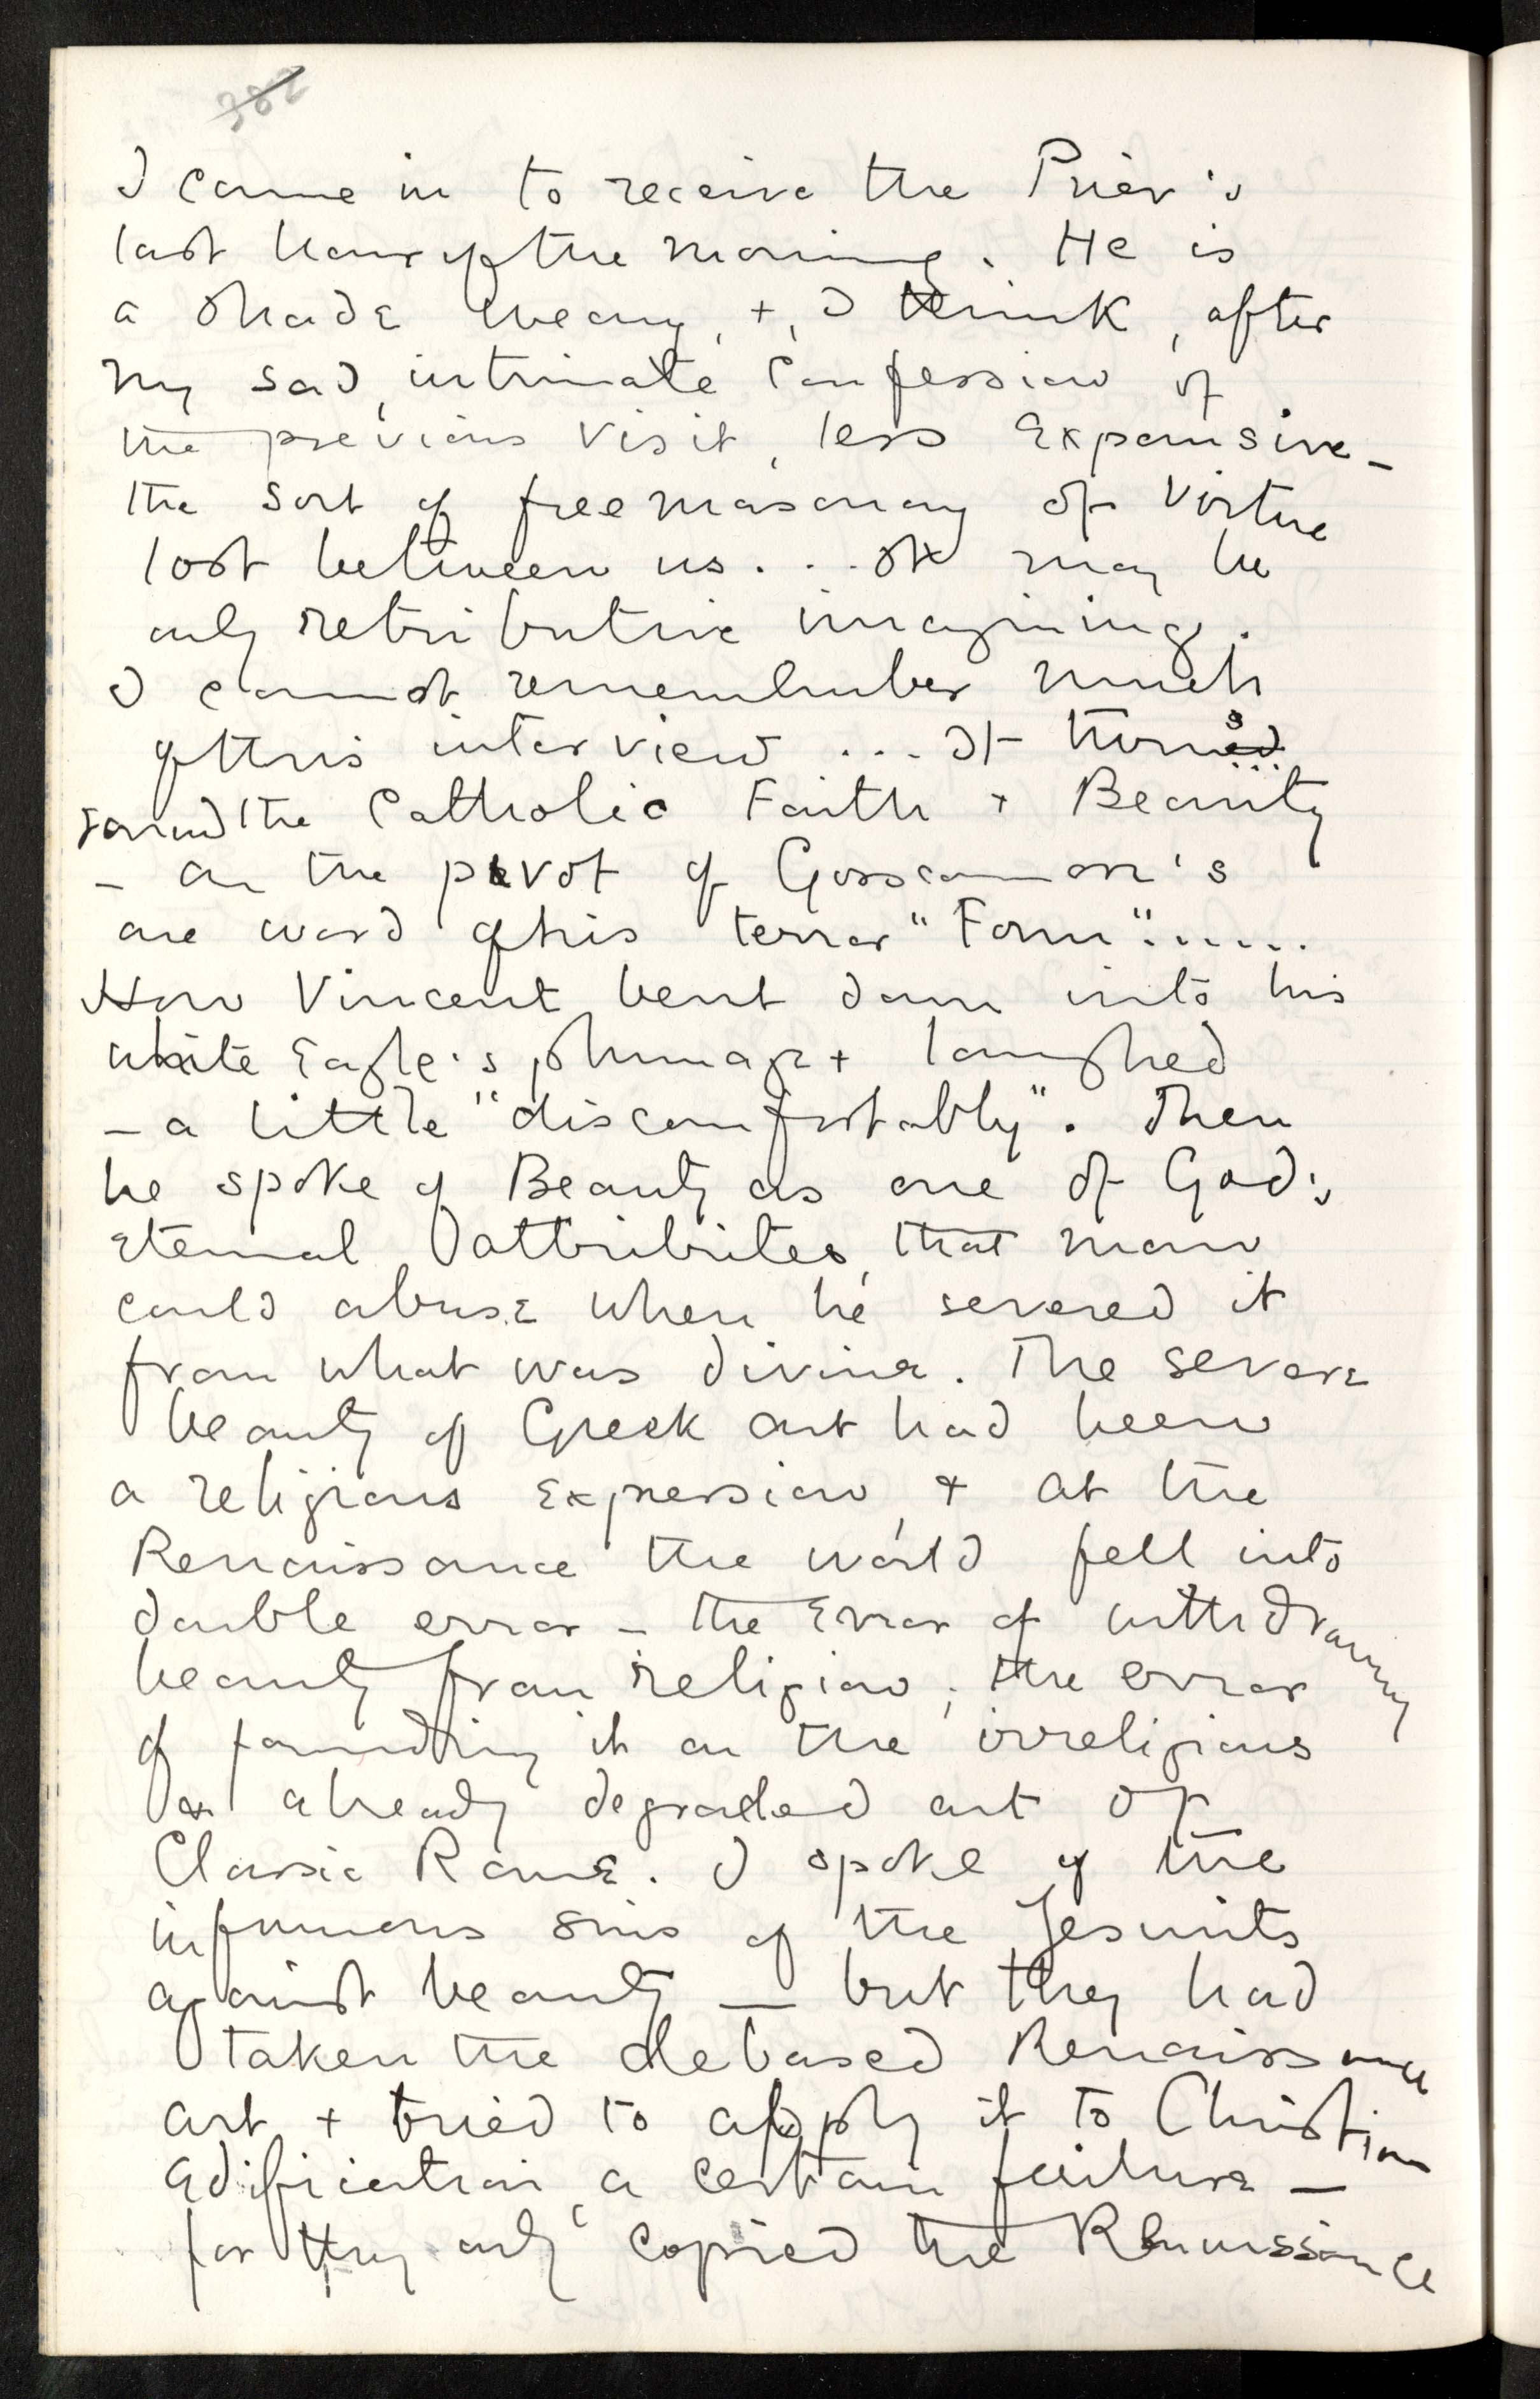 382
I came in to receive the Prior's
last hour of the morning. He is
a shade weary, +, I think, after
my sad, intimate confession of
the previous visit, less expansive –
the sort of freemasonry of virtue
lost between us. . . It may be
only retributive imagining.
I cannot remember much
of this interview ... It turns
round the Catholic Faith + Beauty
– on the pivot of Gosscannon's
one word of his terror "Form".....
How Vincent bent down into his
white Eagle's plumage + laughed
– a little "discomfortably". Then
he spoke of Beauty as one of God's
eternal attributes, that man
could abuse when he severed it
from what was divine. The severe
beauty of Greek art had been
a religious expression, + at the
Renaissance the world fell into
double error – the error of withdrawing
beauty from religion; the error
of founding it on the irreligious
+ already degraded art of
Classic Rome. I spoke of the
infamous sins of the Jesuits
against beauty — but they had
taken the debased Renaissance
art + tried to apply it to Christian
edification, a certain failure —
for they only copied the Renaissance